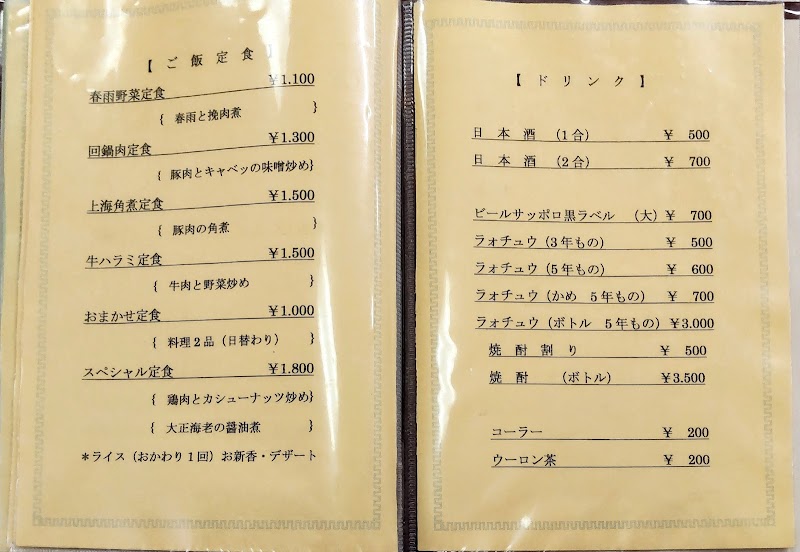 【 ご 飯 定 食 】
春雨野菜定食 ¥1.100
{ 春雨と挽肉煮 }
回鍋肉定食 ¥1.300
{ 豚肉とキャベツの味噌炒め}
上海角煮定食 ¥1.500
{ 豚肉の角煮 }
牛ハラミ定食 ¥1.500
{ 牛肉と野菜炒め }
おまかせ定食 ¥1.000
{ 料理2品(日替わり) }
スペシャル定食 ¥1.800
{ 鶏肉とカシューナッツ炒め}
{ 大正海老の醤油煮 }
*ライス(おかわり1回)お新香・デザート
【 ド リ ン ク 】
日 本 酒 (1合) ¥ 500
日 本 酒 (2合) ¥ 700
ビールサッポロ黒ラベル (大) ¥ 700
ラオチュウ(3年もの) ¥ 500
ラオチュウ(5年もの) ¥ 600
ラオチュウ(かめ 5年もの) ¥ 700
ラオチュウ(ボトル 5年もの) ¥3.000
焼 酎 割 り ¥ 500
焼 酎 (ボトル) ¥3.500
コーラー ¥ 200
ウーロン茶 ¥ 200